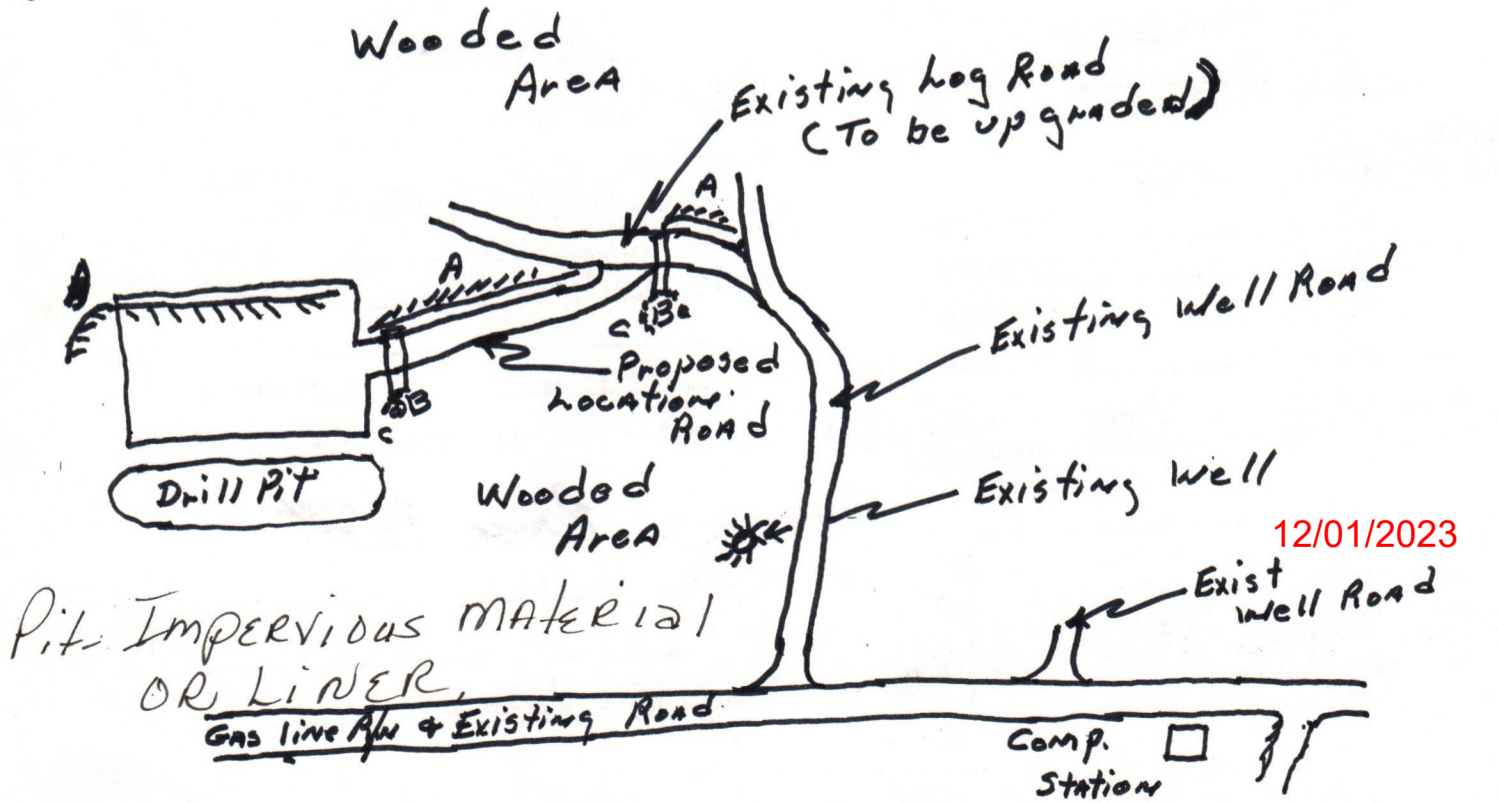 Wooded
Area
Existing Log Road
(To be upgraded)
A
A
A
B
C
C
B
C
Proposed
Location
Road
B
C
Existing Well Road
Drill Pit
Wooded
Area
Existing Well
12/01/2023
Exist
Well Road
Pit Impervious Material
OR Liner.
Gas line R/W & Existing Road
Comp.
Station